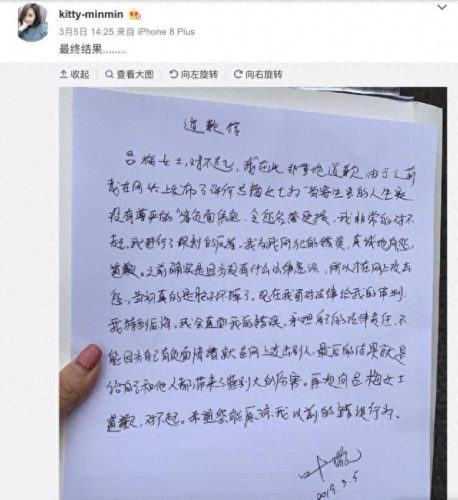 kitty-minmin
3月5日 14:25 来自 iPhone 8 Plus
最终结果........
收起 查看大图 向左旋转 向右旋转
道歉信
吕梅女士,对不起,我在此郑重地道歉,由于之前
我在网上发布了评价吕梅女士为“当寄生虫的人生是
没有尊严的”等负面信息,令您名誉受损,我非常的对不
起,我进行了深刻的反省,我为我所犯的错误,真诚地向您
道歉。之前确实是因为没有什么法律意识,所以才在网上攻击
您,当初真的是脑子坏掉了,现在我面对法律给我的审判,
我特别后悔,我会直面我的错误,承担自己的法律责任,不
能因为自己有负面情绪就在网上攻击别人,最后的结果就是
给自己和他人都带来了特别大的伤害。再次向吕梅女士
道歉,对不起。希望您能原谅我以前的错误行为。
2019.3.5